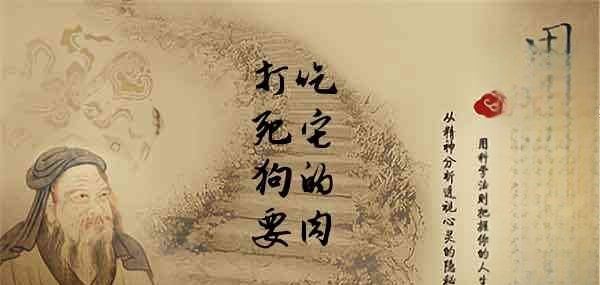 打死狗要
吃它的肉
用科学法则把握你的人生
从精神分析透视心灵的隐秘